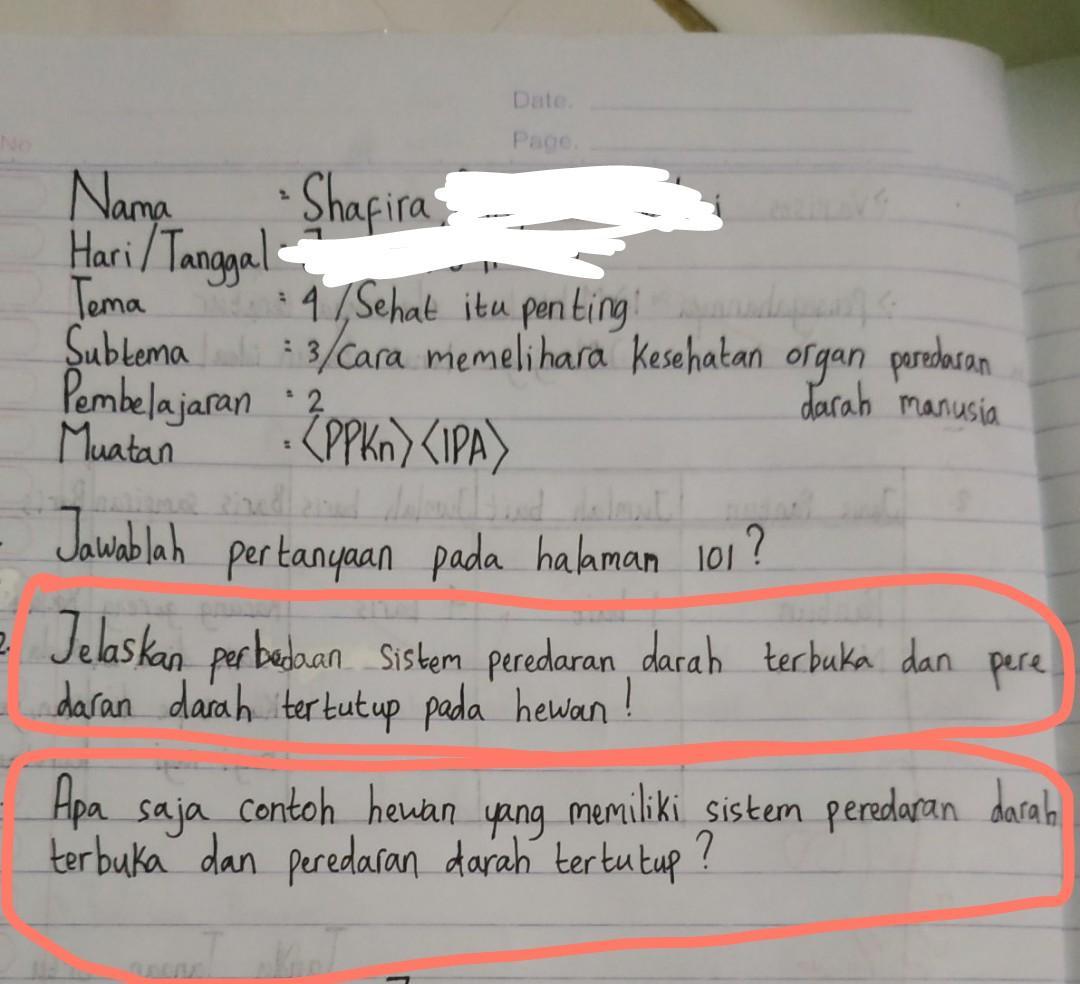 No
Date.
Page.
Nama : Shafira
Hari/Tanggal :
Tema : 4 / Sehat itu penting
Subtema : 3/Cara memelihara kesehatan organ peredaran
Pembelajaran : 2 darah manusia
Muatan : <PPKn> <IPA>
Jawablah pertanyaan pada halaman 101?
2. Jelaskan perbedaan sistem peredaran darah terbuka dan pere
daran darah tertutup pada hewan!
Apa saja contoh hewan yang memiliki sistem peredaran darah
terbuka dan peredaran darah tertutup?